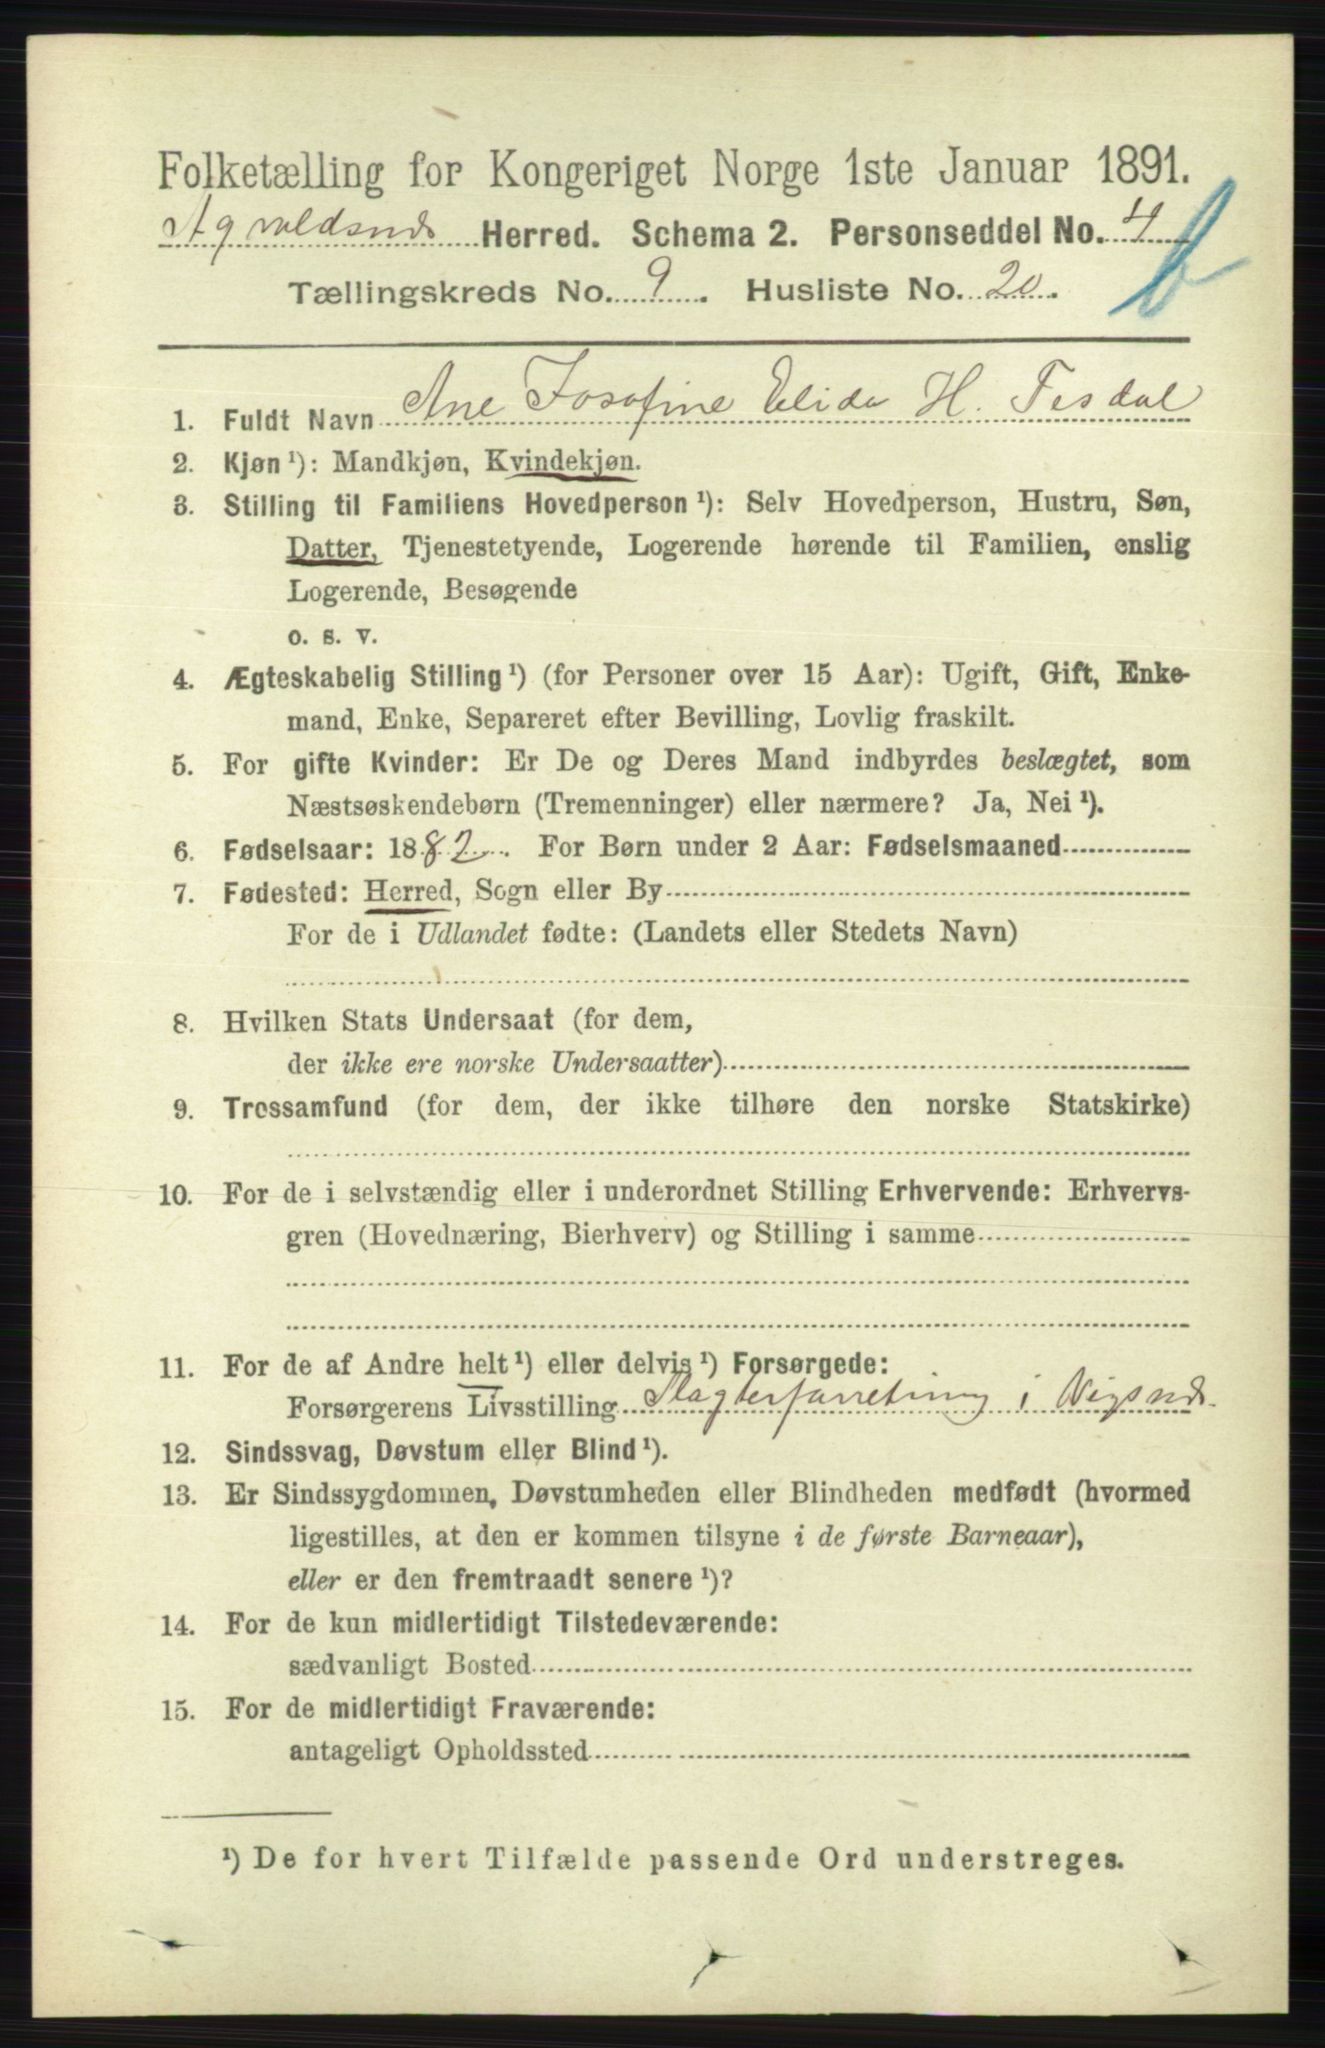 Folketælling for Kongeriget Norge 1ste Januar 1891.
Agvaldsnæs Herred. Schema 2. Personseddel No. 4
b
Tællingskreds No. 9. Husliste No. 20.
1. Fuldt Navn Ane Josofine Elida H. Fesdal
2. Kjøn ¹): Mandkjøn, Kvindekjøn.
3. Stilling til Familiens Hovedperson ¹): Selv Hovedperson, Hustru, Søn,
Datter, Tjenestetyende, Logerende hørende til Familien, enslig
Logerende, Besøgende
o. s. v.
4. Ægteskabelig Stilling ¹) (for Personer over 15 Aar): Ugift, Gift, Enke-
mand, Enke, Separeret efter Bevilling, Lovlig fraskilt.
5. For gifte Kvinder: Er De og Deres Mand indbyrdes beslægtet, som
Næstsøskendebørn (Tremenninger) eller nærmere? Ja, Nei ¹).
6. Fødselsaar: 1882. For Børn under 2 Aar: Fødselsmaaned
7. Fødested: Herred, Sogn eller By
For de i Udlandet fødte: (Landets eller Stedets Navn)
8. Hvilken Stats Undersaat (for dem,
der ikke ere norske Undersaatter)
9. Trossamfund (for dem, der ikke tilhøre den norske Statskirke)
10. For de i selvstændig eller i underordnet Stilling Erhvervende: Erhvervs-
gren (Hovednæring, Bierhverv) og Stilling i samme
11. For de af Andre helt ¹) eller delvis ¹) Forsørgede:
Forsørgerens Livsstilling Slagterforretning i Vigsnæs
12. Sindssvag, Døvstum eller Blind ¹).
13. Er Sindssygdommen, Døvstumheden eller Blindheden medfødt (hvormed
ligestilles, at den er kommen tilsyne i de første Barneaar),
eller er den fremtraadt senere ¹)?
14. For de kun midlertidigt Tilstedeværende:
sædvanligt Bosted
15. For de midlertidigt Fraværende:
antageligt Opholdssted
¹) De for hvert Tilfælde passende Ord understreges.